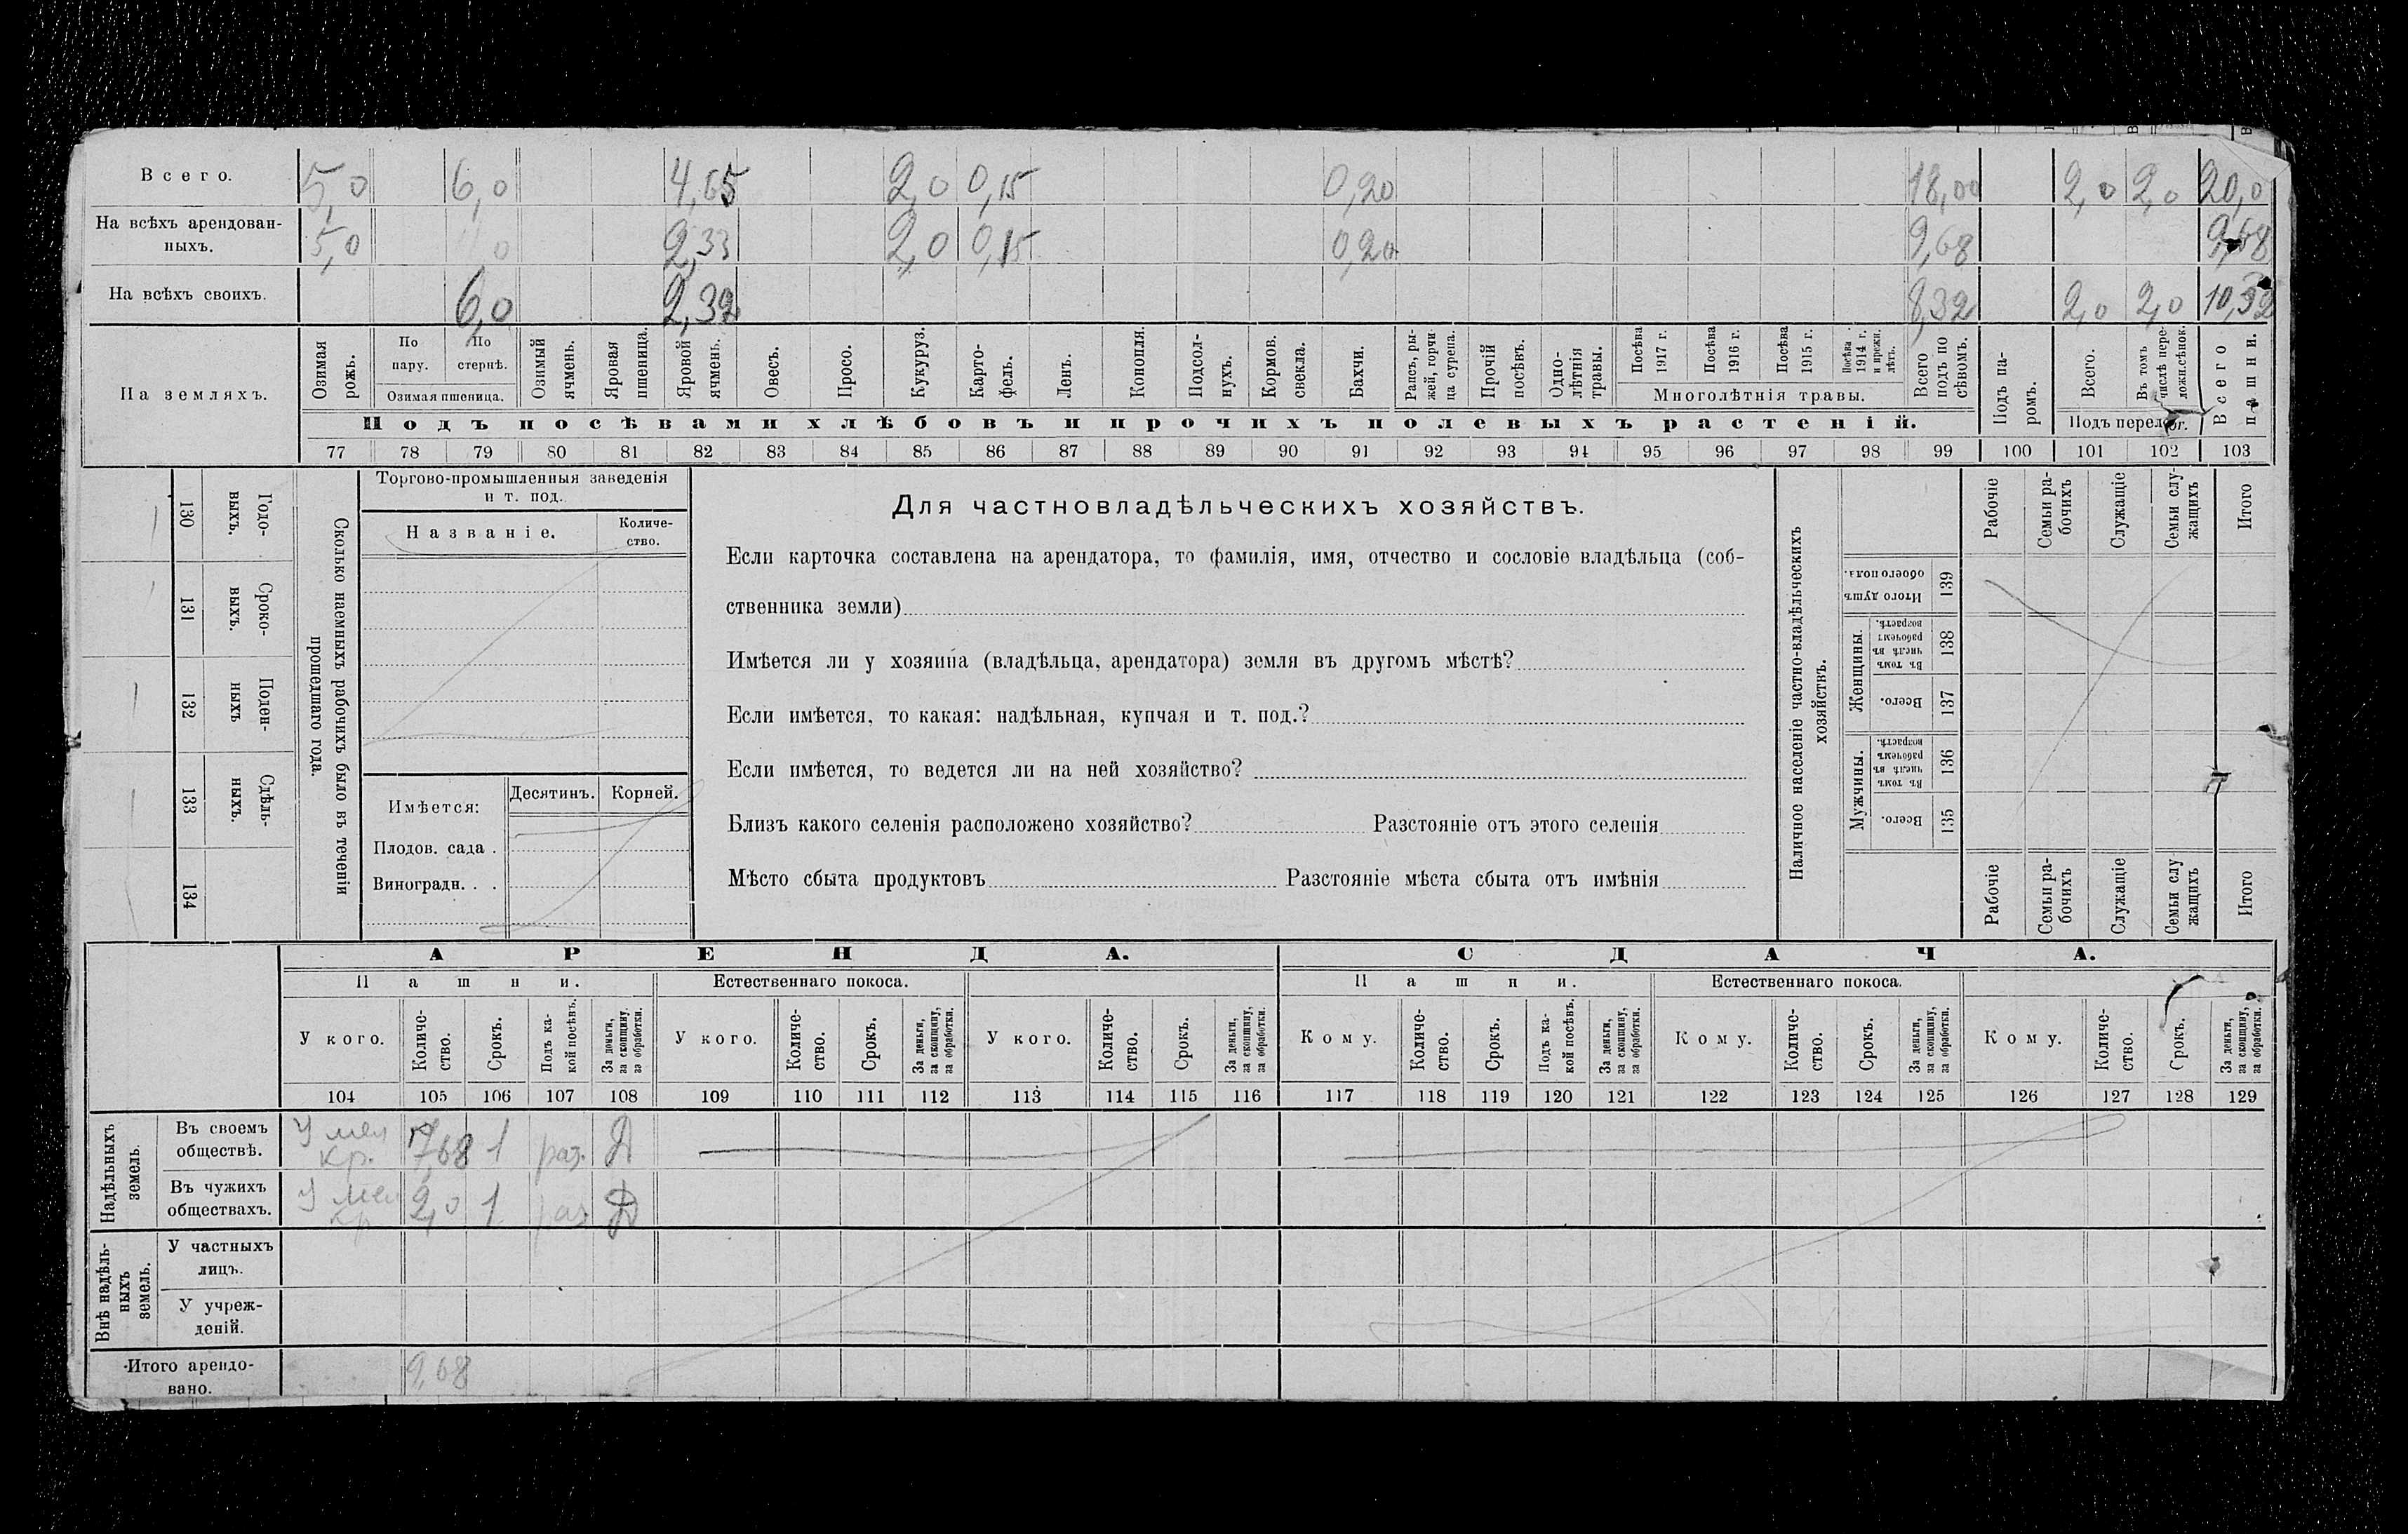 Всего. 5,0 6,0 4,65 2,0 0,15 0,20 18,00 2,0 2,0 20,0
На всѣхъ арендован-
ныхъ. 5,0 2,33 2,0 0,15 0,20 9,68 9,68
На всѣхъ своихъ. 6,0 2,32 8,32 2,0 2,0 10,32
На земляхъ.
Озимая рожь.
По пару.
По стернѣ.
Озимая пшеница.
Озимый ячмень.
Яровая пшеница.
Яровой ячмень.
Овесъ.
Просо.
Кукуруз.
Карто-
фель.
Ленъ.
Конопля.
Подсол-
нухъ.
Кормов. свекла.
Бахчи.
Рапсъ, ры-
жей, горчи
ца сурепа.
Прочій посѣвъ.
Одно-
лѣтнія травы.
Посѣва 1917 г.
Посѣва 1916 г.
Посѣва 1915 г.
Посѣва 1914 г. и прежн. лѣтъ.
Многолѣтнія травы.
Всего подъ по
сѣвомъ.
Подъ па-
ромъ.
Всего.
Въ томъ числѣ пере-
ложн.сѣнок.
Подъ перелог.
Всего пашни.
Подъ посѣвами хлѣбовъ и прочихъ полевыхъ растеній.
77 78 79 80 81 82 83 84 85 86 87 88 89 90 91 92 93 94 95 96 97 98 99 100 101 102 103
130 Годо-
выхъ.
131 Сроко-
выхъ.
132 Поден-
ныхъ
133 Сдѣль-
ныхъ.
134
Сколько наемныхъ рабочихъ было въ теченіи
прошедшаго года.
Торгово-промышленныя заведенія
и т. под.
Названіе.
Количе-
ство.
Имѣется:
Десятинъ. Корней.
Плодов. сада .
Виноградн. . .
Для частновладѣльческихъ хозяйствъ.
Если карточка составлена на арендатора, то фамилія, имя, отчество и сословіе владѣльца (соб-
ственника земли)
Имѣется ли у хозяина (владѣльца, арендатора) земля въ другомъ мѣстѣ?
Если имѣется, то какая: надѣльная, купчая и т. под.?
Если имѣется, то ведется ли на ней хозяйство?
Близъ какого селенія расположено хозяйство? Разстояніе отъ этого селенія
Мѣсто сбыта продуктовъ Разстояніе мѣста сбыта отъ имѣнія
Наличное населеніе частно-владѣльческихъ
хозяйствъ.
Рабочіе
Семьи ра-
бочихъ
Служащіе
Семьи слу-
жащихъ
Итого
Итого душъ
обоего пола.
139
Женщины.
Въ томъ числѣ въ рабочемъ возрастѣ.
138
Всего.
137
Мужчины.
Въ томъ числѣ въ рабочемъ возрастѣ.
136
Всего.
135
Рабочіе
Семьи ра-
бочихъ
Служащіе
Семьи слу
жащихъ
Итого
АРЕНДА. СДАЧА.
Пашни. Естественнаго покоса. Пашни. Естественнаго покоса.
У кого.
Количе-
ство.
Срокъ.
Подъ ка-
кой посѣвъ.
За деньги,
за скопщину,
за обработки.
У кого.
Количе-
ство.
Срокъ.
За деньги,
за скопщину,
за обработки.
У кого.
Количе-
ство.
Срокъ.
За деньги,
за скопщину,
за обработки.
Кому.
Количе-
ство.
Срокъ.
Подъ ка-
кой посѣвъ.
За деньги,
за скопщину,
за обработки.
Кому.
Количе-
ство.
Срокъ.
За деньги,
за скопщину,
за обработки.
Кому.
Количе-
ство.
Срокъ.
За деньги,
за скопщину,
за обработки.
104 105 106 107 108 109 110 111 112 113 114 115 116 117 118 119 120 121 122 123 124 125 126 127 128 129
Надѣльныхъ
земель.
Въ своемъ
обществѣ. У кр. 7,68 1 раз. Д
Въ чужихъ
обществахъ. У кр 2,0 1 раз. Д
Внѣ надѣль-
ныхъ
земель.
У частныхъ
лицъ.
У учреж-
деній.
Итого арендо-
вано. 9,68